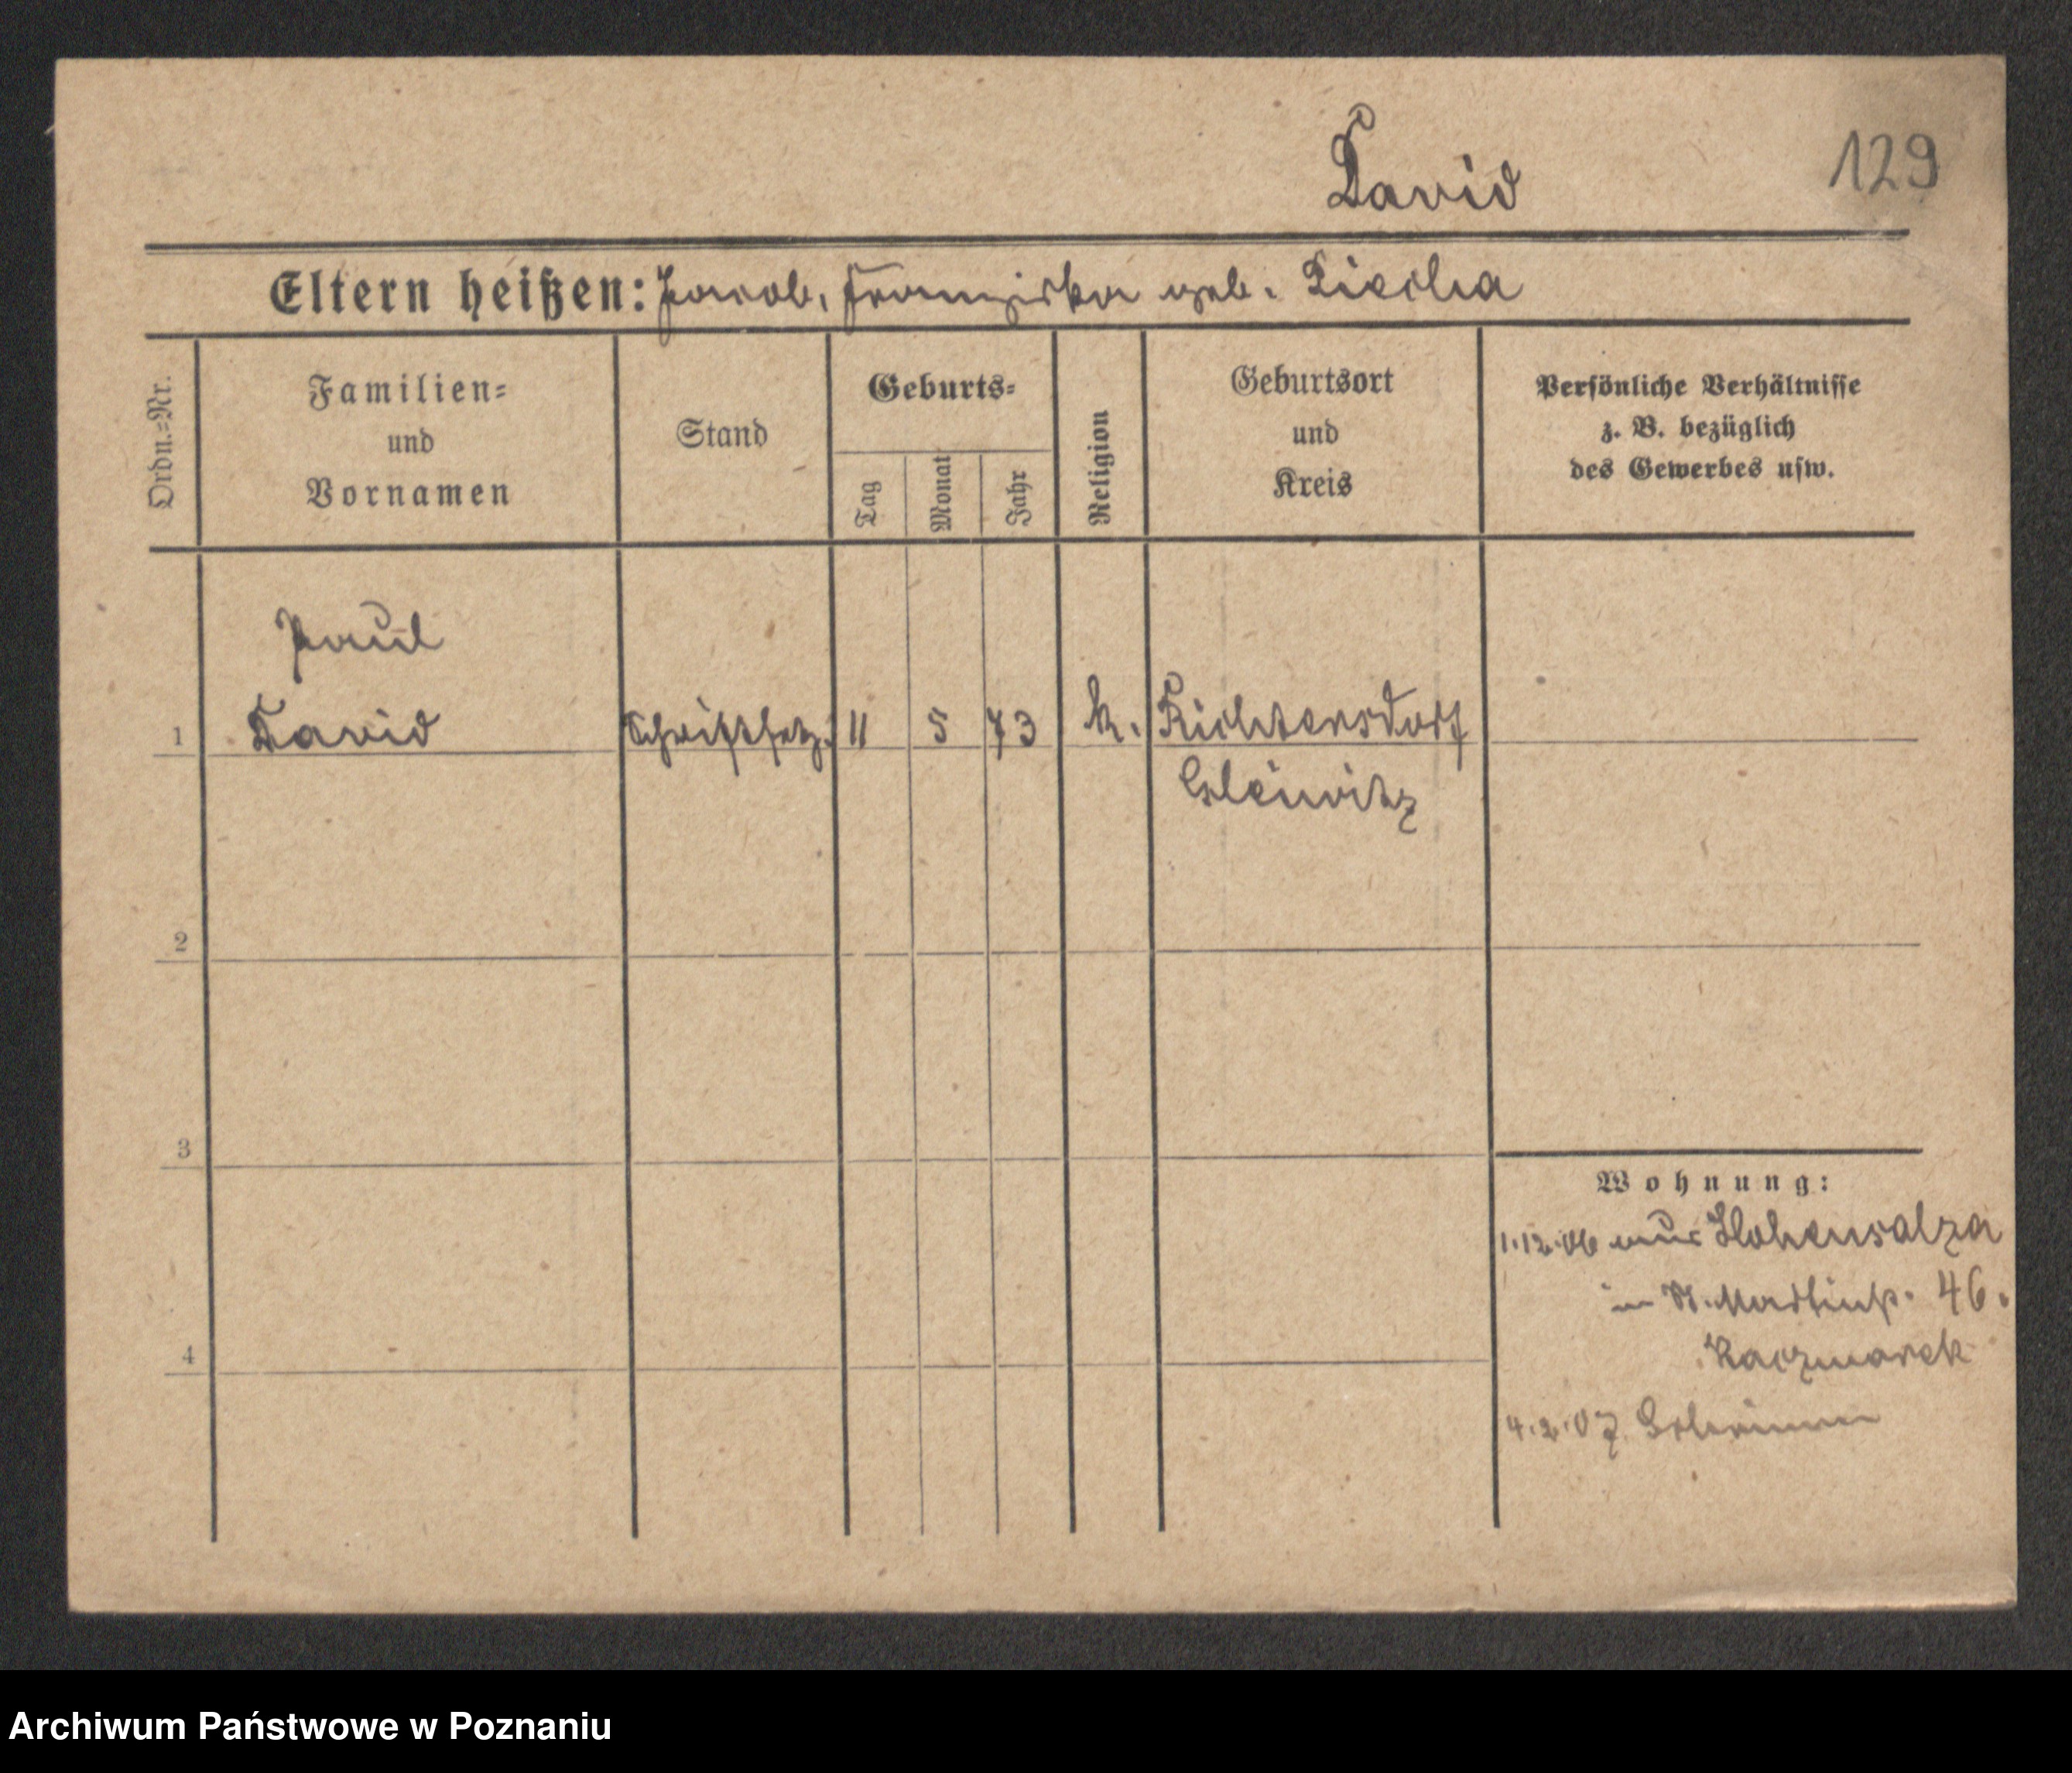 David
129
Eltern heißen: Jacob, Franziska geb.
Ordn.=Nr.
Familien=
und
Vornamen
Stand
Geburts=
Tag
Monat
Jahr
Religion
Geburtsort
und
Kreis
Persönliche Verhältnisse
z. B. bezüglich
des Gewerbes usw.
Paul
1 David Schriftsetz. 11 5 73 k. Richtersdorf
Gleiwitz
2
3
4
Wohnung:
1.12.06 aus Hohensalza
in St. Martinstr. 46.
Kaczmarek
4.2.07
Archiwum Państwowe w Poznaniu